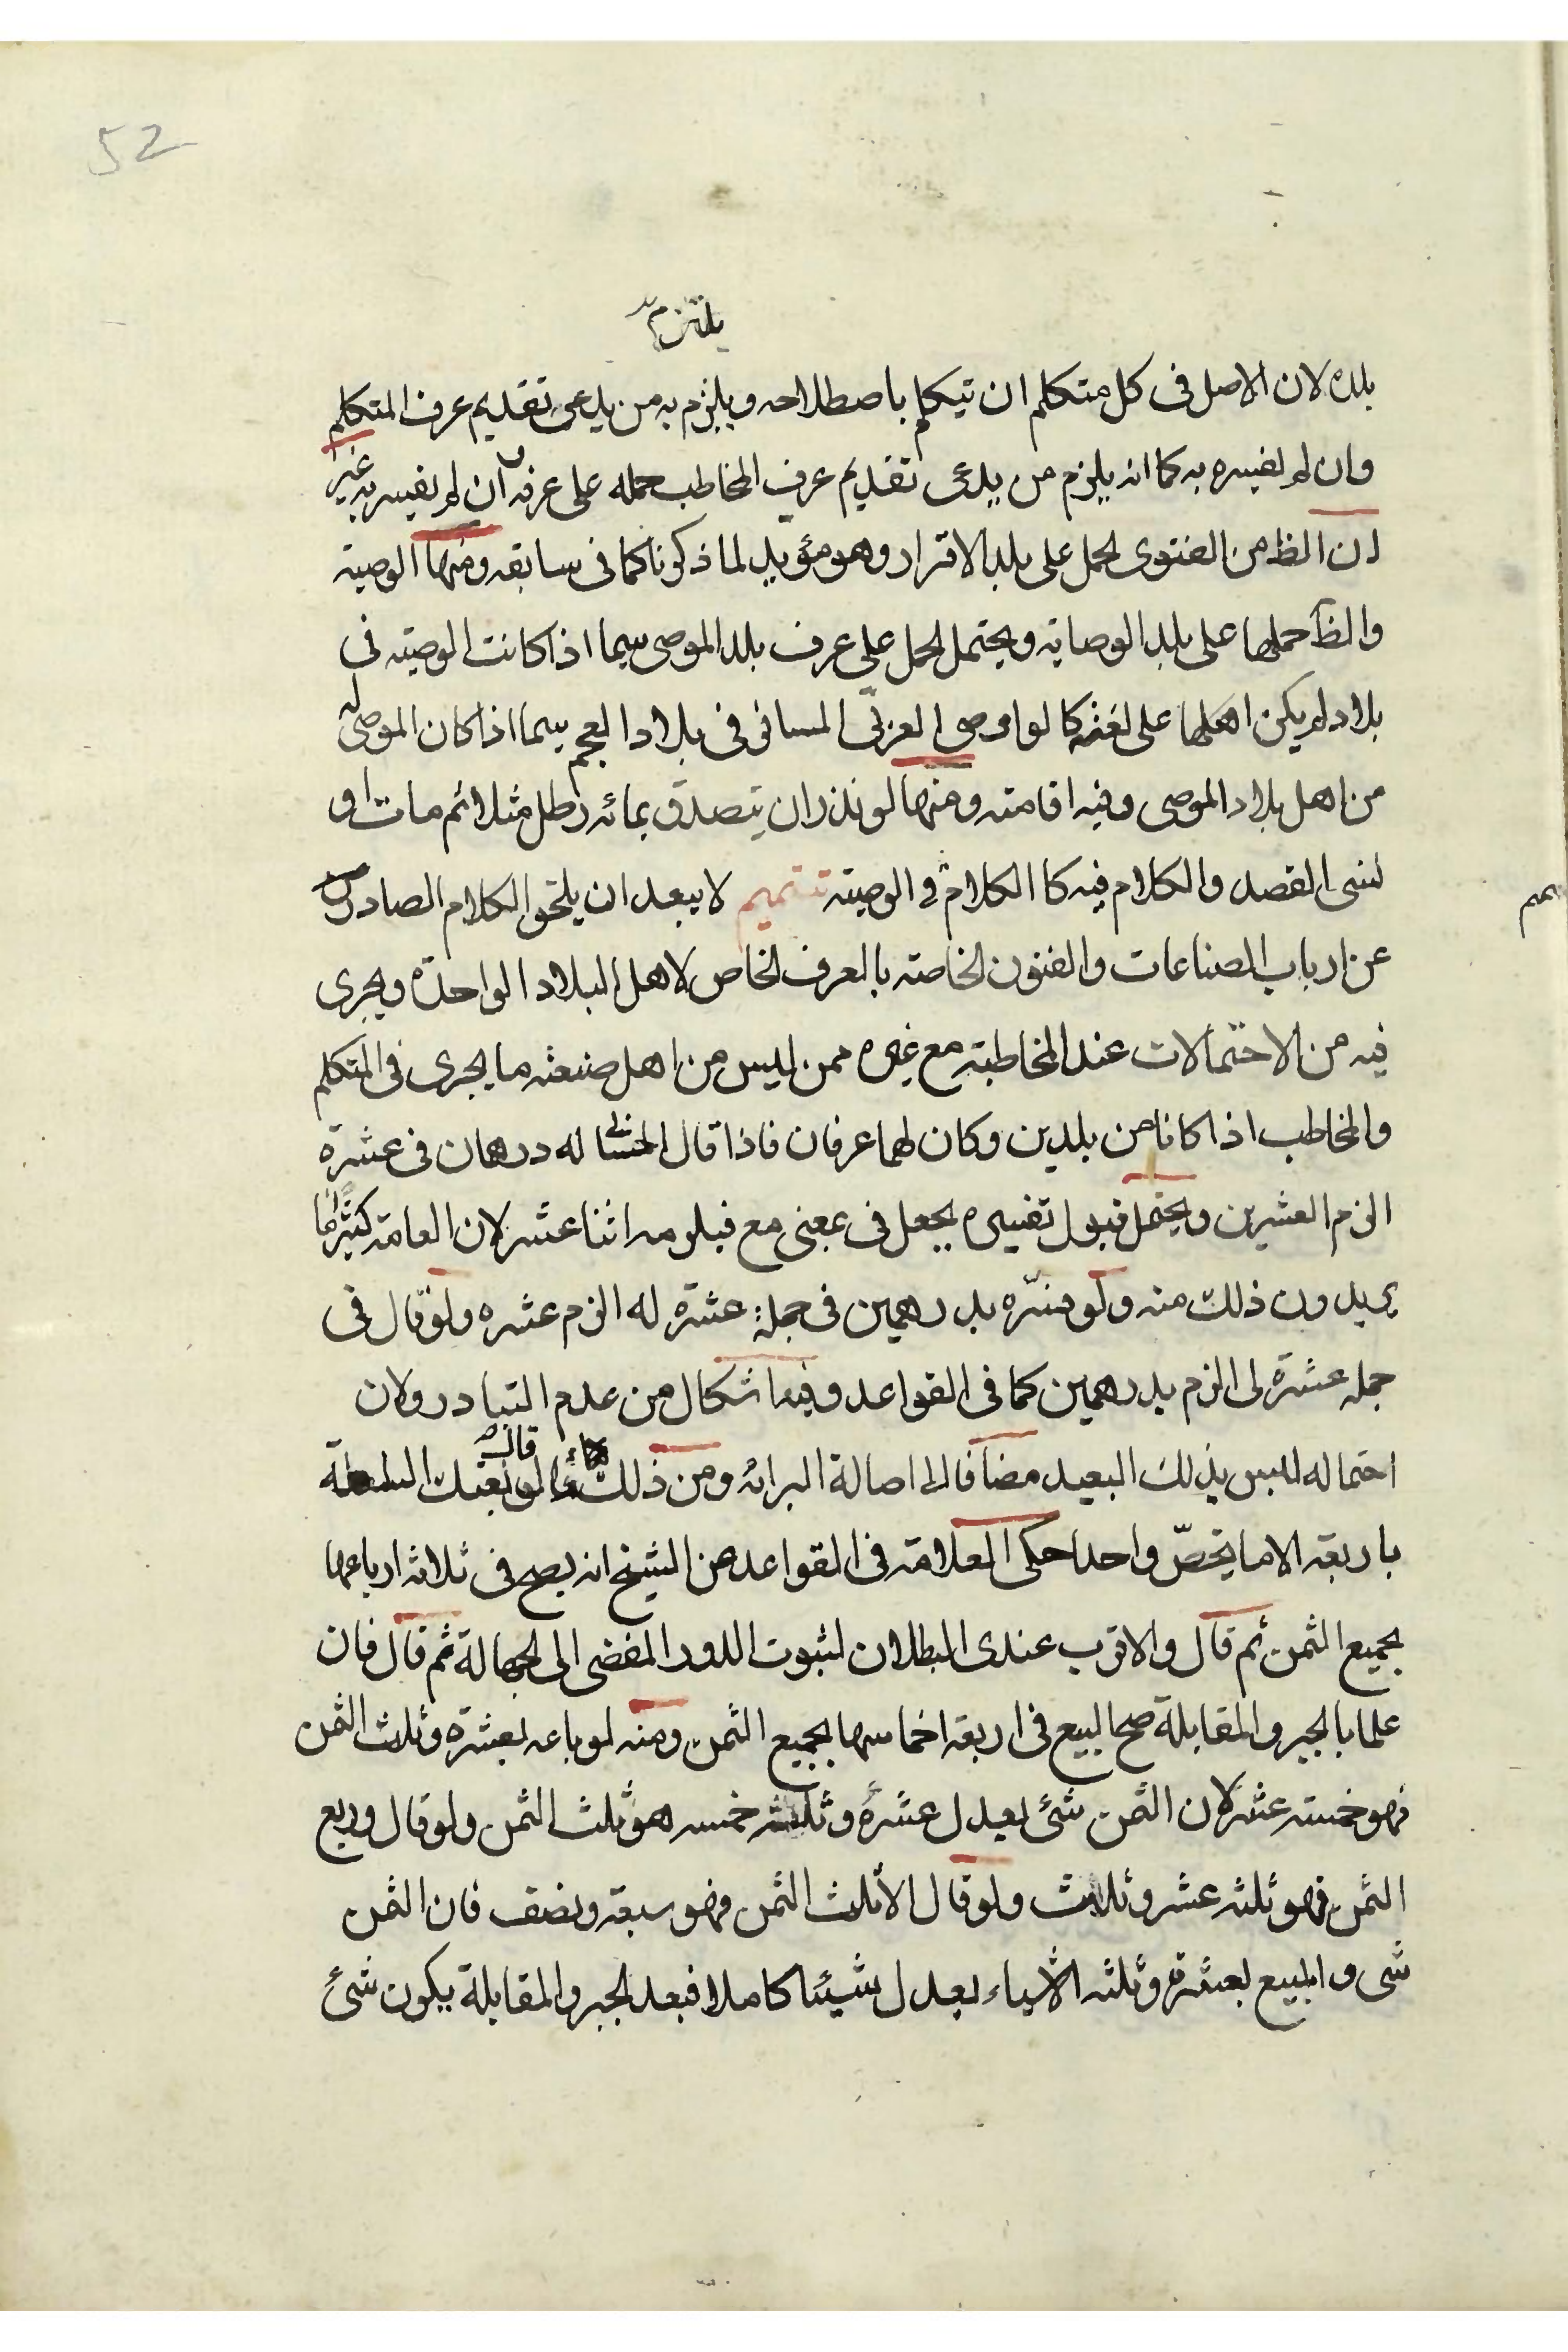 52
يلتزم
بلده لان الاصل فى كل متكلم ان يتكلم باصطلاحه ويلزم به من يدعى تقديم عرف المتكلم
وان لم يفسره به كما انه يلزم من يدعى تقديم عرف المخاطب حمله على عرفه ان لم يفسر به غير
ان الظ من الفتوى لحمل على بلد الاقرار وهو مؤيد لما ذكرنا كما فى سابقه ومنها الوصية
والظ حملها على بلد الوصاية ويحتمل الحمل على عرف بلد الموصى سيما اذا كانت الوصية فى
بلاد لم يكن اهلها على لغته كما لو اوصى العربى المسافر فى بلاد العجم سيما اذا كان الموصى له
من اهل بلاد الموصى وفيه اقامته ومنها لو نذر ان يتصدق بمائه رطل مثلا ثم مات او
نسى القصد والكلام فيه كا الكلام فى الوصية تتميم لا يبعد ان يلحق الكلام الصادر
تتميم
عن ارباب الصناعات والفنون الخاصة بالعرف الخاص لاهل البلاد الواحدة ويجرى
فيه من الاحتمالات عند المخاطبة مع غيره ممن ليس من اهل صنعته ما يجرى فى المتكلم
والمخاطب اذا كانا من بلدين وكان لهما عرفان فاذا قال له درهمان فى عشرة
الزم العشرين ويحتمل قبول تفسيره بجعل فى بمعنى مع فيلزمه اثنا عشر لان العامة كثيرا ما
يريدون ذلك منه ولو فسّره بدرهمين فى جملة عشرة له الزم عشره ولو قال فى
جمله عشرة لى الزم بدرهمين كما فى القواعد وفيه اشكال من عدم التبادر ولان
احتماله لليس بذلك البعيد مضافا الى اصالة البرائه ومن ذلك لو قال بعتك السلعة
باربعه الا ما يخصّ واحدا حكى العلامة فى القواعد عن الشيخ انه يصح فى ثلاثه ارباعها
بجميع الثمن ثم قال والاقرب عندى البطلان لثبوت الدور المفضى الى الجهالة ثم قال فان
علما بالجبر والمقابلة صح البيع فى اربعة اخماسها بجميع الثمن ومنه لو باعه بعشرة وثلث الثمن
فهو خمسة عشر لان الثمن شئ يعدل عشرة وثلثه خمسه هو ثلث الثمن ولو قال وربع
الثمن فهو ثلثه عشر وثلث ولو قال الا ثلث الثمن فهو سبعة ونصف فان الثمن
شى والمبيع بعشرة وثلثه الاشياء يعدل شيئا كاملا فبعد الجبر والمقابلة يكون شئ